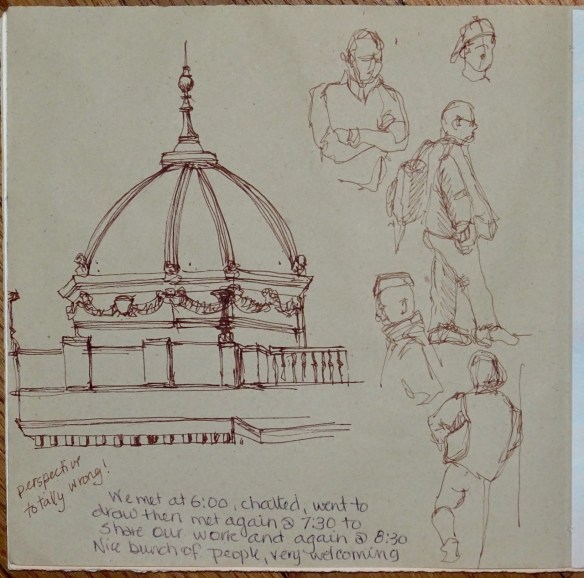 perspective
totally wrong!
We met at 6:00, chatted, went to
draw then met again @ 7:30 to
share our work and again @ 8:30
Nice bunch of people, very welcoming